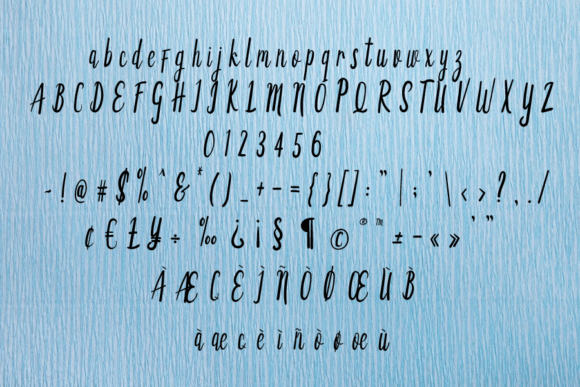 a b c d e F g h i j k l m n o p q r s t u v w x y z
A B C D E F G H I J K L M N O P Q R S T U V W X Y Z
0 1 2 3 4 5 6
- ! @ # $ % ^ & * ( ) _ + - = { } [ ] : " | ; ' \ < > ? , . /
¢ € £ ¥ ÷ ‰ ¿ ¡ § ¶ © ® ™ ± - « » ' "
À Æ C È Ì Ñ Ò Ø Œ Ù B̀
à æ c è ì ñ ò ø œ ù